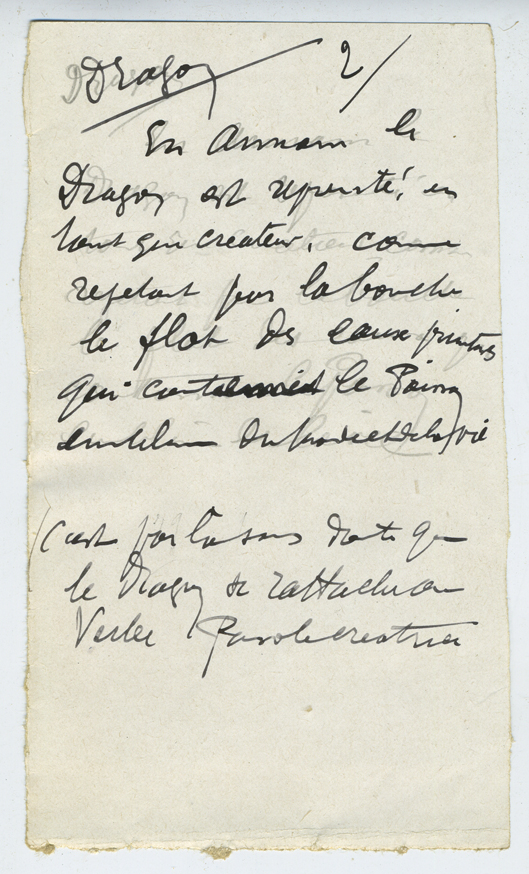 Dragon 2/
En Annam le
Dragon est représenté, en
tant que créateur, comme
rejetant par la bouche
le flot des eaux
qui le
du et de la vie
c'est par là sans doute que
le Dragon se rattache au
Verbe Parole créatrice